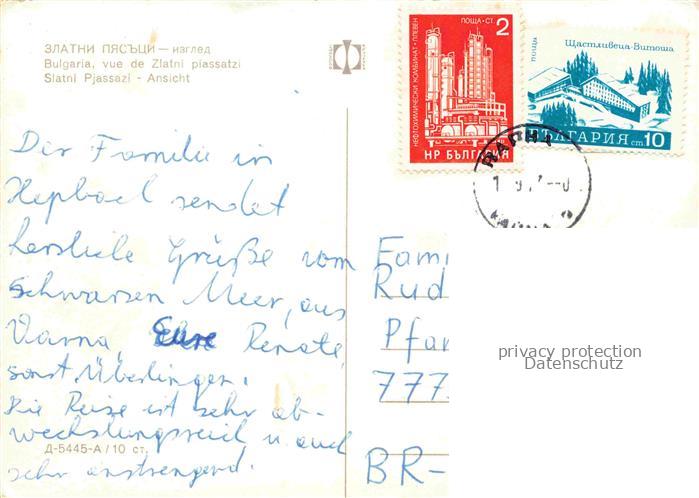 ЗЛАТНИ ПЯСЪЦИ — изглед
Bulgaria, vue de Zlatni piassatzi
Slatni Pjassazi - Ansicht
НЕФТОХИМИЧЕСКИ КОМБИНАТ - ПЛЕВЕН
ПОЩА · СТ. 2
НР БЪЛГАРИЯ
поща
Щастливеца - Витоша
БЪЛГАРИЯ ст 10
ВАРНА
Der Familie in
sendet
herzliche Grüße vom
schwarzen Meer, aus
Varna, Eure Renate,
sonst Überlingen.
Die Reise ist sehr ab-
wechslungsreich u. auch
sehr anstrengend.
Д-5445-А / 10 ст.
Fami
Rud
Pfar
777
BR-
privacy protection
Datenschutz